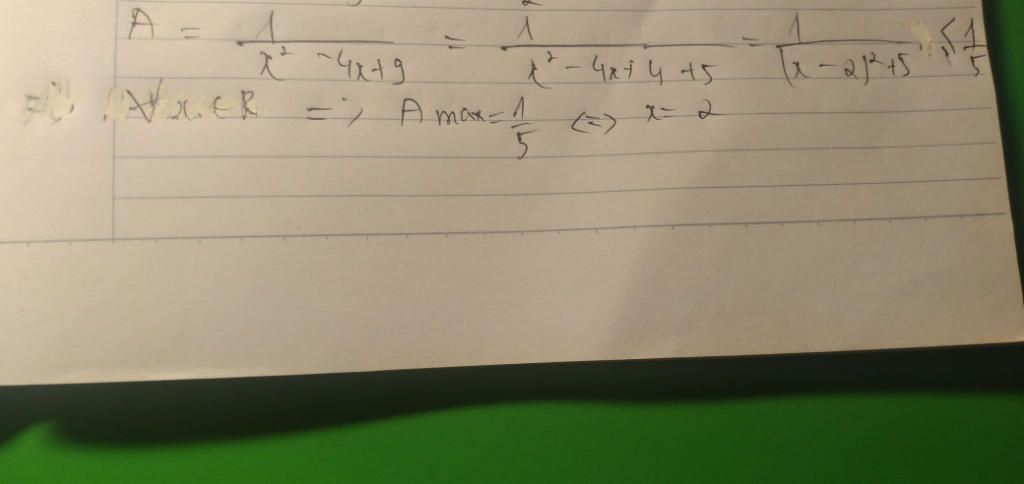 A = 1/(x² - 4x+9) = 1/(x² - 4x+4+5) = 1/((x - 2)²+5) ≤ 1/5
∀x ∈ R => A max = 1/5 <=> x = 2